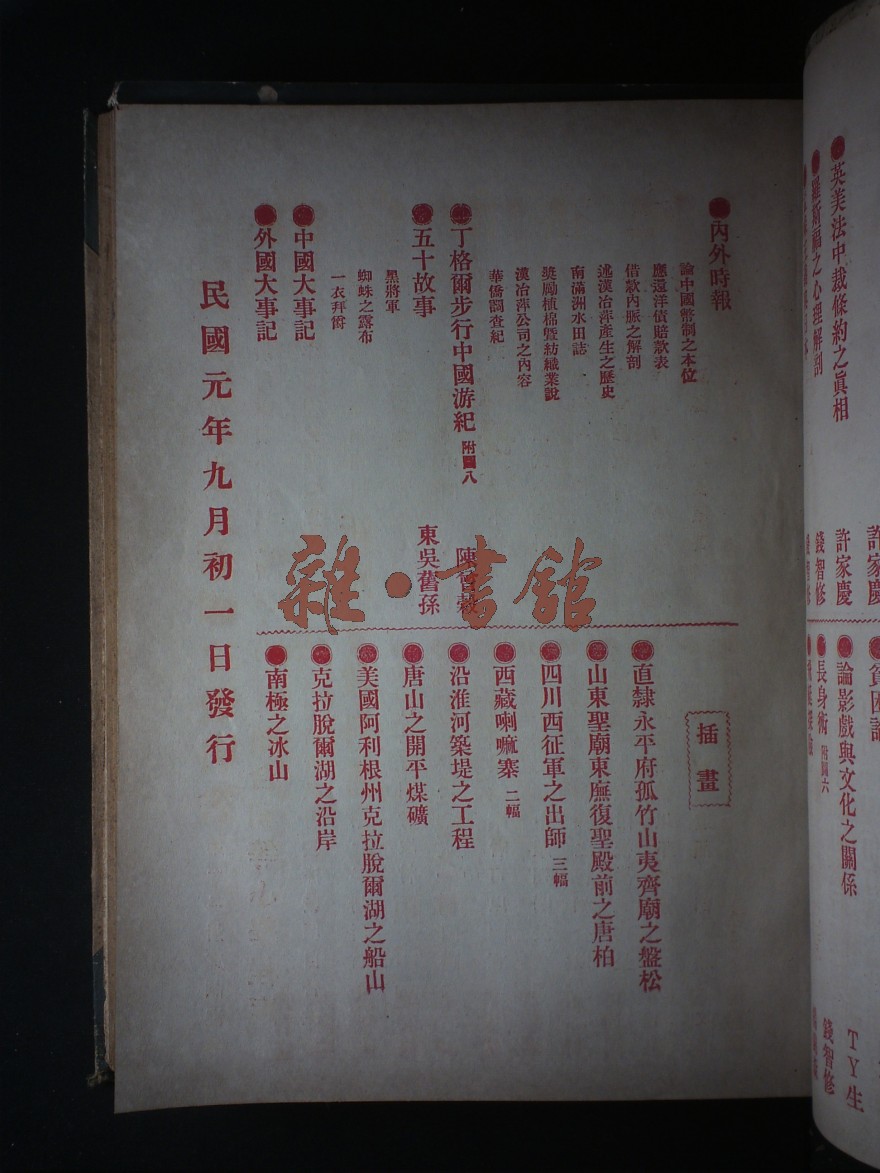 英美法中裁條約之眞相
許家慶
羅斯福之心理解剖
錢智修
論影戲與文化之關係
TY生
長身術 附圖六
錢智修
內外時報
論中國幣制之本位
應還洋債賠款表
借款內脈之解剖
述漢冶萍產生之歷史
南滿洲水田誌
獎勵植棉暨紡織業說
漢冶萍公司之內容
華僑調查紀
丁格爾步行中國游紀 附圖八
陳曾穀
五十故事
東吳舊孫
黑將軍
蜘蛛之露布
一衣拜爵
中國大事記
外國大事記
插畫
直隸永平府孤竹山夷齊廟之盤松
山東聖廟東廡復聖殿前之唐柏
四川西征軍之出師 三幅
西藏喇嘛寨 二幅
沿淮河築堤之工程
唐山之開平煤礦
美國阿利根州克拉脫爾湖之船山
克拉脫爾湖之沿岸
南極之冰山
民國元年九月初一日發行
雜·書館